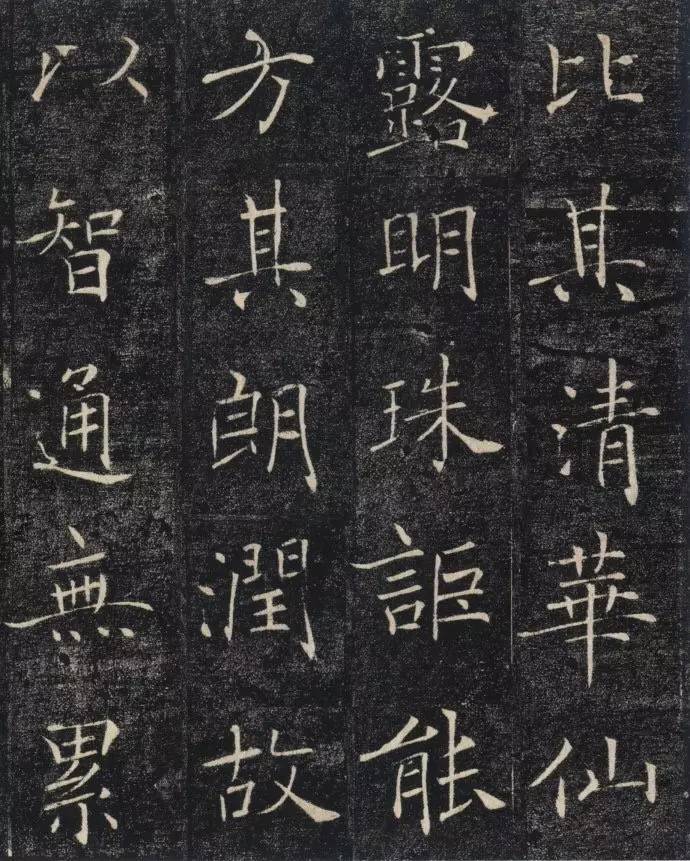 比其清華仙
露明珠詎能
方其朗潤故
以智通無累